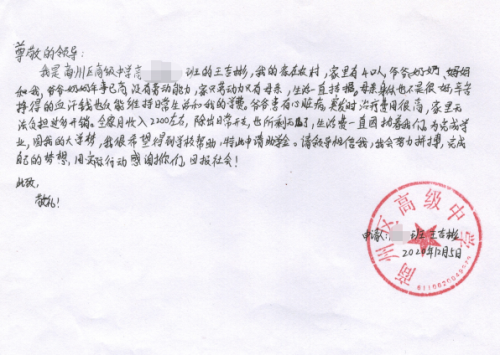 尊敬的领导:
我是商州区高级中学高 班的王吉彬,我的家在农村,家里有4口人,爷爷奶奶、妈妈
和我,爷爷奶奶年事已高,没有劳动能力,家只劳动力只有母亲,生活一直拮据,母亲身体也不是很好,辛苦
挣得的血汗钱也只能维持日常生活和我的学费,爷爷患有心脏病, 治疗费用很高,家里无
法负担这每开销。全家月收入2200左右,除去日常开支,也所剩无几,生活费一直困扰着我们,为完成学
业,圆我的大学梦,我很希望得到学校帮助,特此申请助学金。请领导相信我,我会努力拼搏,完成
自己的梦想,用实际行动感谢你们,回报社会!
此致,
敬礼!
申请人: 班 王吉彬
2020年12月5日
商州区高级中学